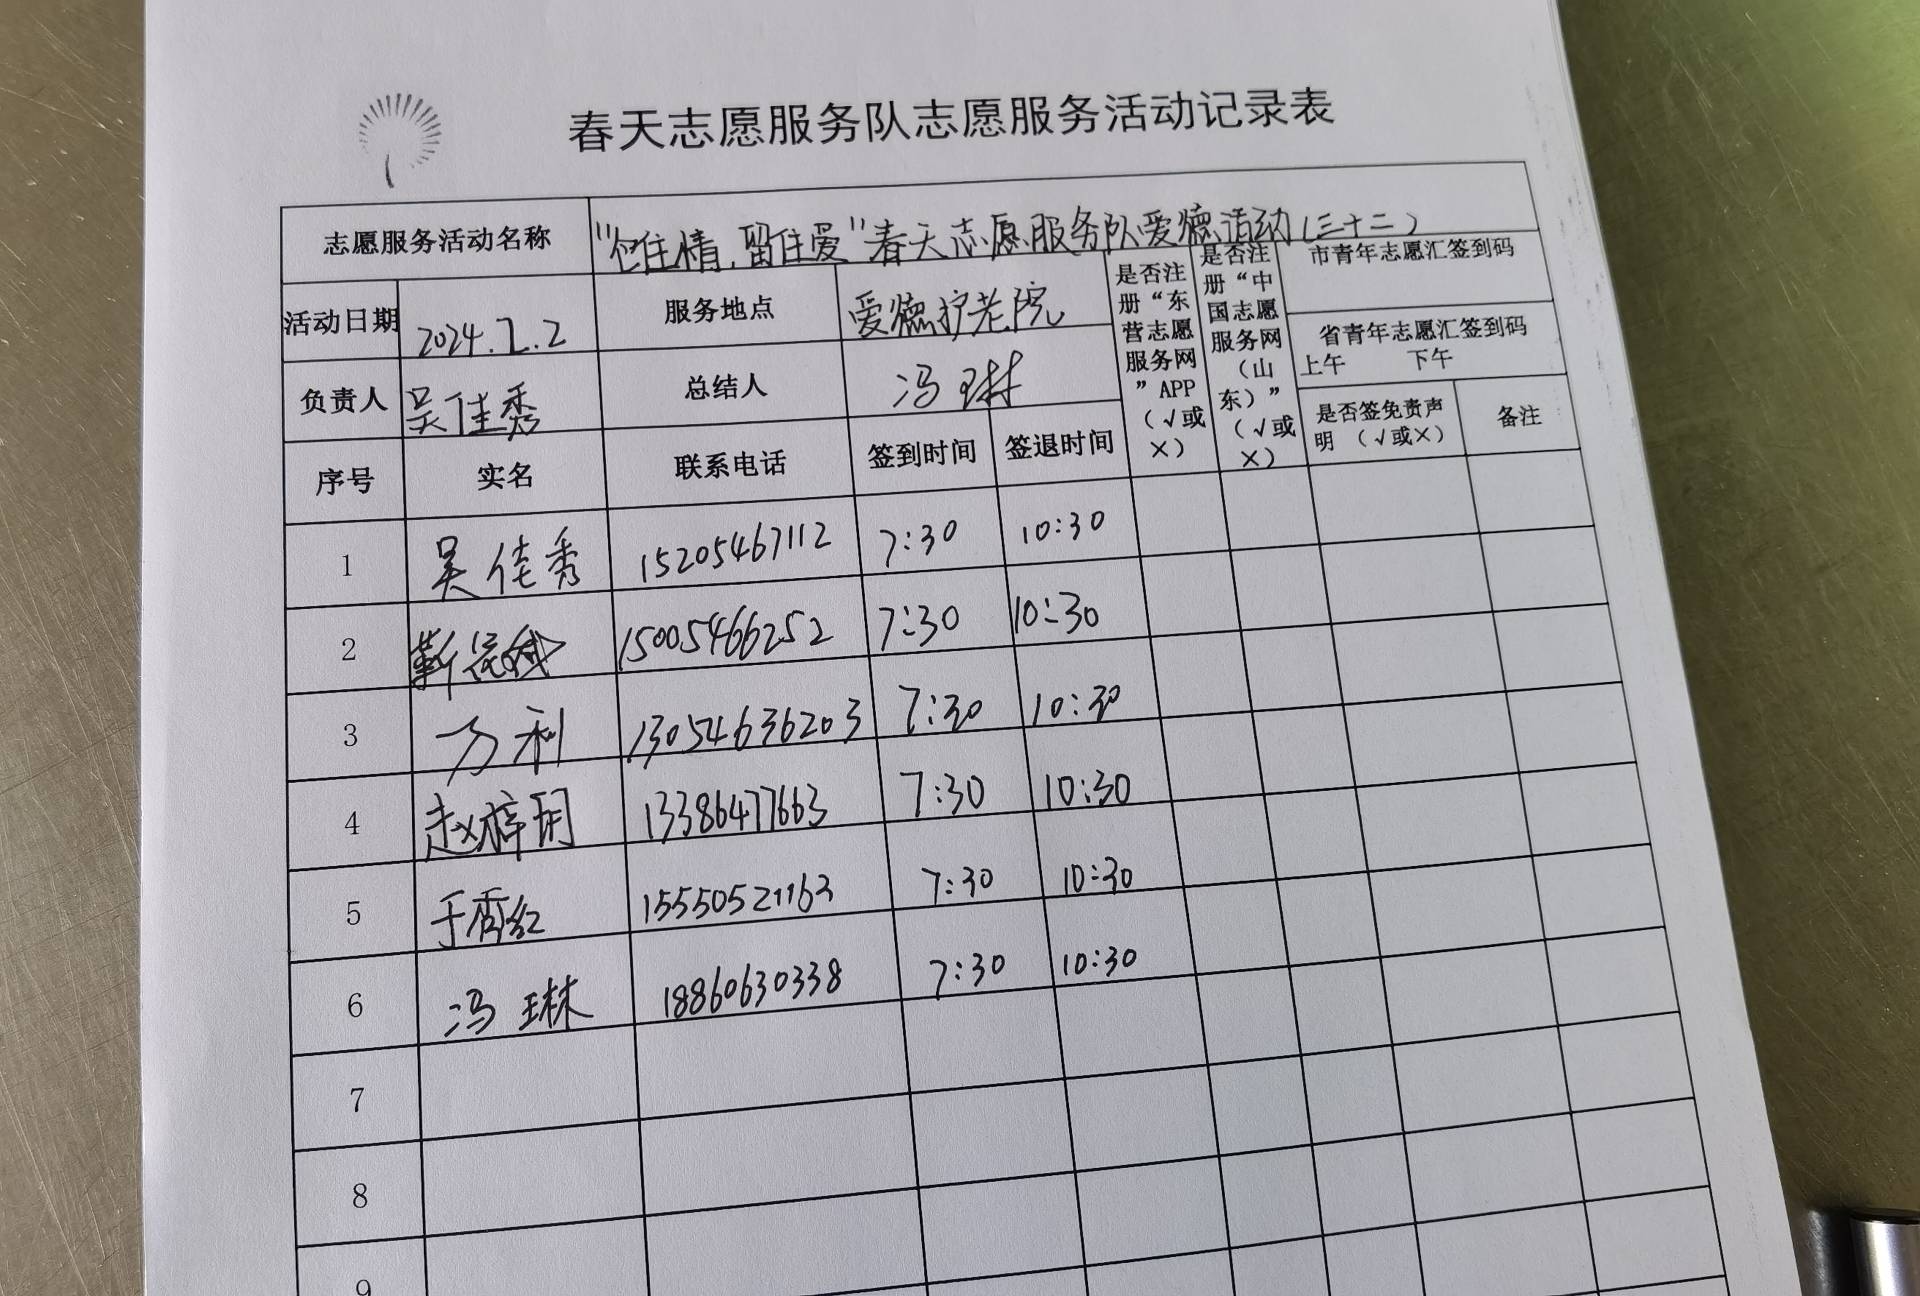 春天志愿服务队志愿服务活动记录表
志愿服务活动名称 "包住情,留住爱"春天志愿服务队爱德活动(三十二)
活动日期 2024.7.2 服务地点 爱德护老院
负责人 吴佳秀 总结人 冯琳
是否注册“东营志愿服务网”APP(√或×)
是否注册“中国志愿服务网(山东)”(√或×)
市青年志愿汇签到码
省青年志愿汇签到码
上午 下午
是否签免责声明 (√或×) 备注
序号 实名 联系电话 签到时间 签退时间
1 吴佳秀 15205467112 7:30 10:30
2 靳 15005466252 7:30 10:30
3 万利 13054636203 7:30 10:30
4 赵梓玥 13386477663 7:30 10:30
5 于秀红 15550521163 7:30 10:30
6 冯琳 18860630338 7:30 10:30
7
8
9